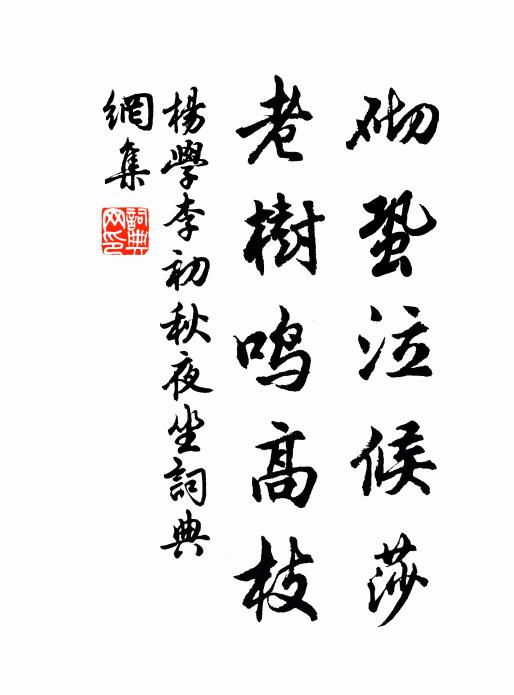 砌蛩泣候莎
老樹鳴高枝
楊學李初秋夜坐詞典
網集
詞典網印